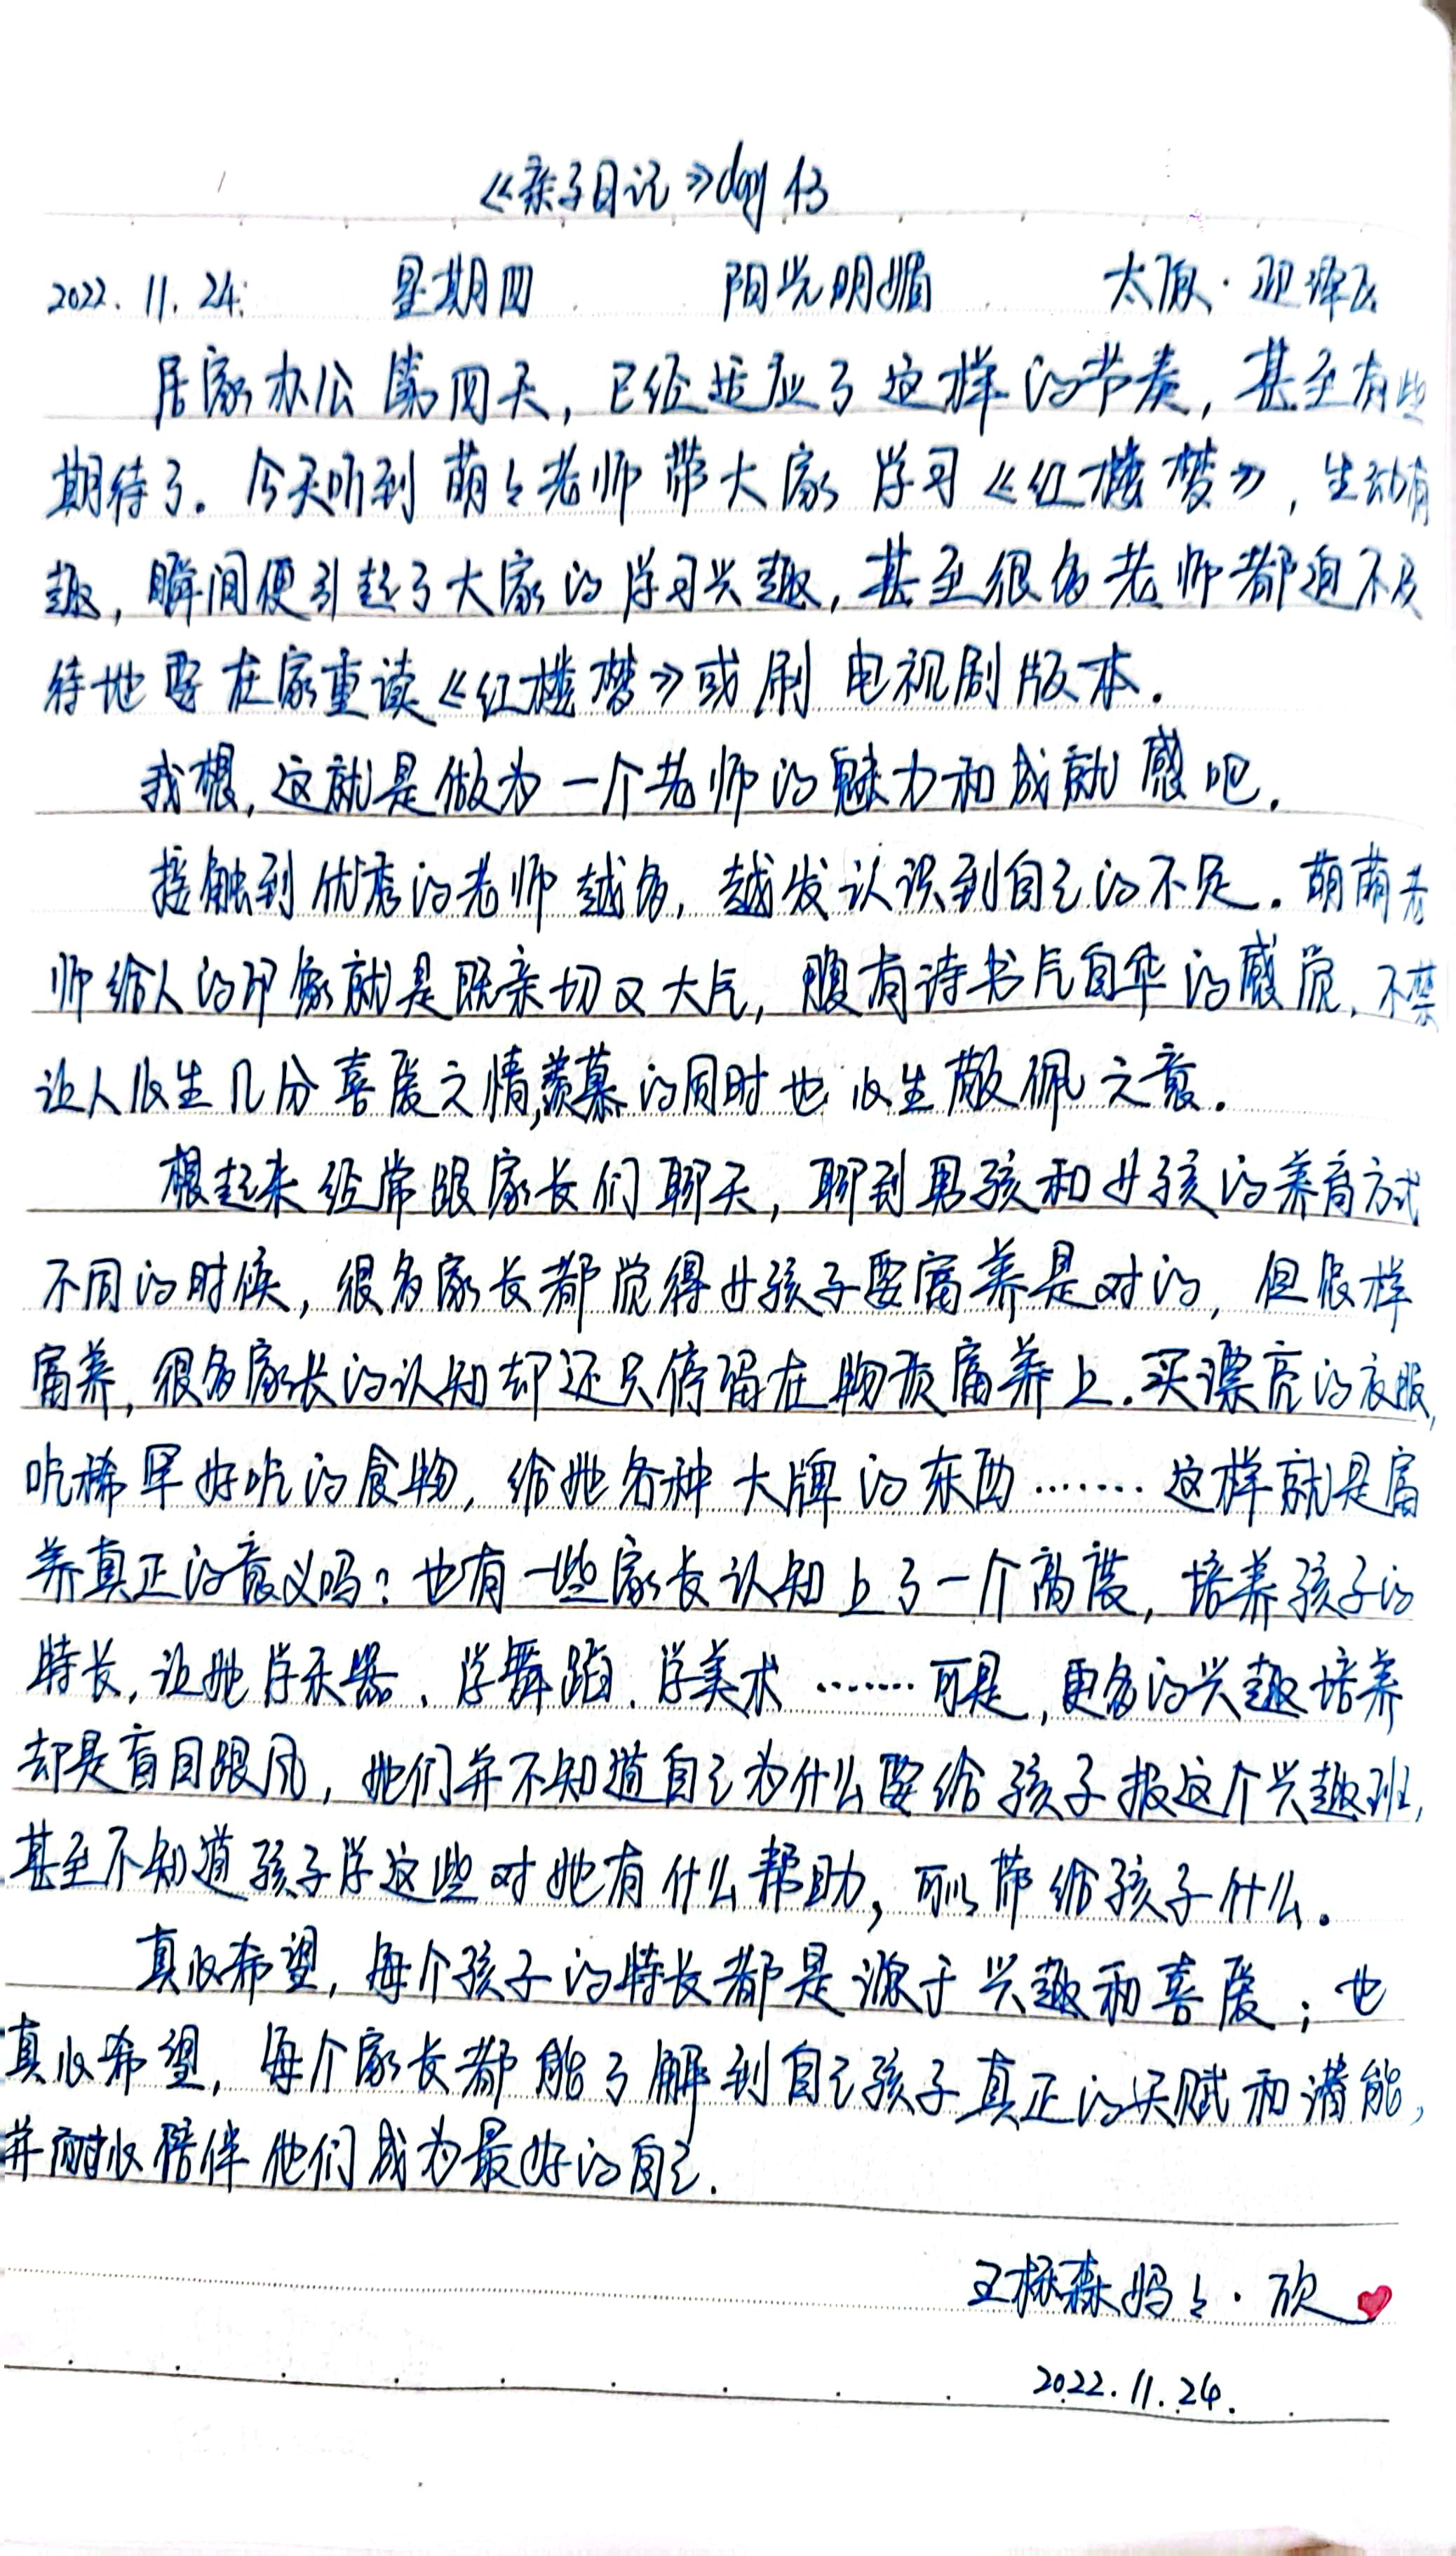 《亲子日记》day 43
2022.11.24. 星期四 阳光明媚 太原·迎泽区
居家办公第四天，已经适应了这样的节奏，甚至有些
期待了。今天听到萌々老师带大家学习《红楼梦》，生动有
趣，瞬间便引起了大家的学习兴趣，甚至很多老师都迫不及
待地要在家重读《红楼梦》或刷电视剧版本．
我想，这就是做为一个老师的魅力和成就感吧．
接触到优秀的老师越多，越发认识到自己的不足．萌萌老
师给人的印象就是既亲切又大气，腹有诗书气自华的感觉，不禁
让人心生几分喜爱之情，羡慕的同时也心生敬佩之意．
想起来经常跟家长们聊天，聊到男孩和女孩的养育方式
不同的时候，很多家长都觉得女孩子要富养是对的，但怎样
富养，很多家长的认知却还只停留在物质富养上．买漂亮的衣服，
吃稀罕好吃的食物，给她各种大牌的东西……．这样就是富
养真正的意义吗？也有一些家长认知上了一个高度，培养孩子的
特长，让她学乐器、学舞蹈、学美术……．可是，更多的兴趣培养
却是盲目跟风，她们并不知道自己为什么要给孩子报这个兴趣班，
甚至不知道孩子学这些对她有什么帮助，可以带给孩子什么。
真心希望，每个孩子的特长都是源于兴趣和喜爱；也
真心希望，每个家长都能了解到自己孩子真正的天赋和潜能，
并耐心陪伴他们成为最好的自己．
妈々·欣
2022.11.24.